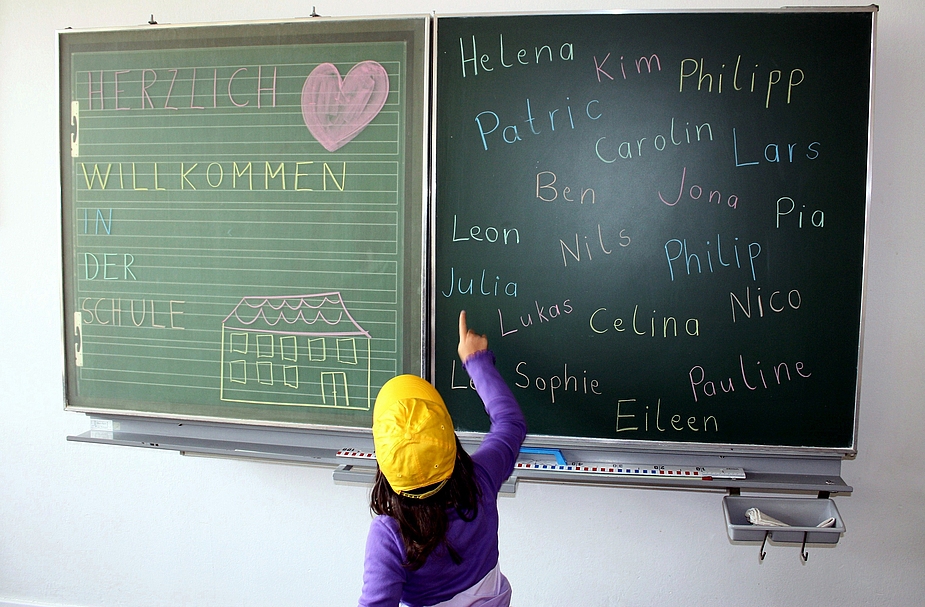 HERZLICH
WILLKOMMEN
IN
DER
SCHULE
Helena Kim Philipp
Patric Carolin Lars
Ben Jona Pia
Leon Nils Philip
Julia Lukas Celina Nico
Sophie Pauline
Eileen